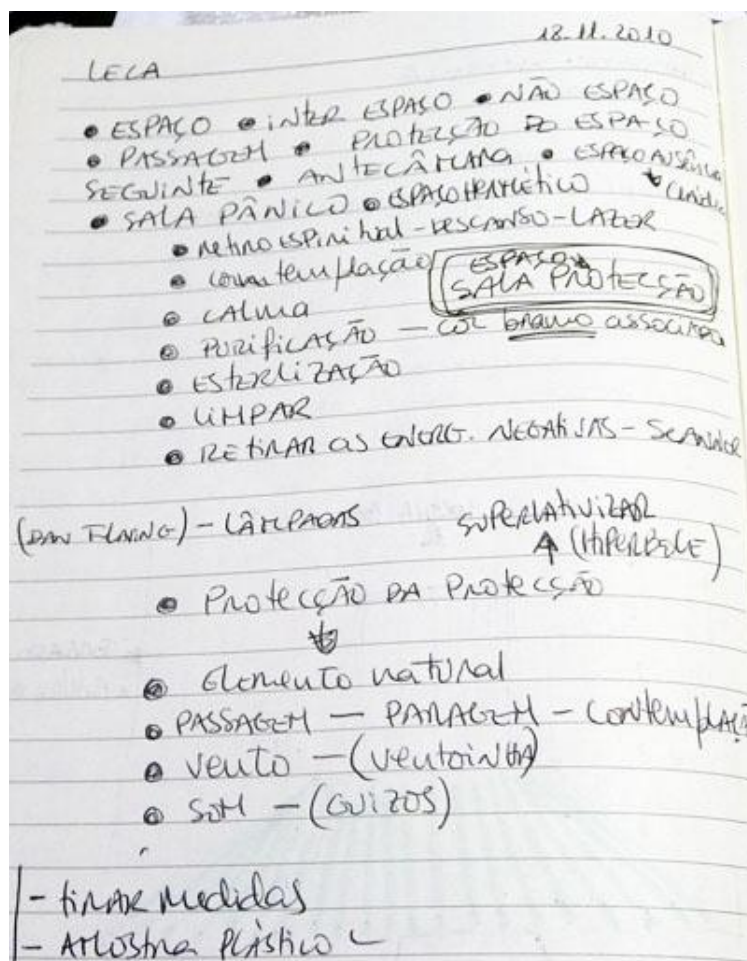 18.11.2010
LECA
• ESPAÇO • iNTER ESPAÇO • NÃO ESPAÇO
• PASSAGEM • PROTECÇÃO DO ESPAÇO
SEGUINTE • ANTECÂMARA • ESPAÇO AUSÊNCIA
• SALA PÂNICO • ESPAÇO HERMÉTICO
• retiro ESPIRITUAL - DESCANSO - LAZER
• contemplação
ESPAÇO
SALA PROTECÇÃO
• CALMA
• PURIFICAÇÃO — COR branco associADA
• ESTERLIZAÇÃO
• LIMPAR
• RETIRAR as ENERG. NEGATIVAS - SCANNER
(DAN FLAVING) - LÂMPADAS
SUPERLATIVIZAR
(HIPERBOLE)
• Protecção DA Protecção
• Elemento natural
• PASSAGEM — PARAGEM - Contemplaçã
• Vento — (ventoinha)
• SOM — (GUIZOS)
- tirar medidas
- AMOSTRA PLÁSTICO